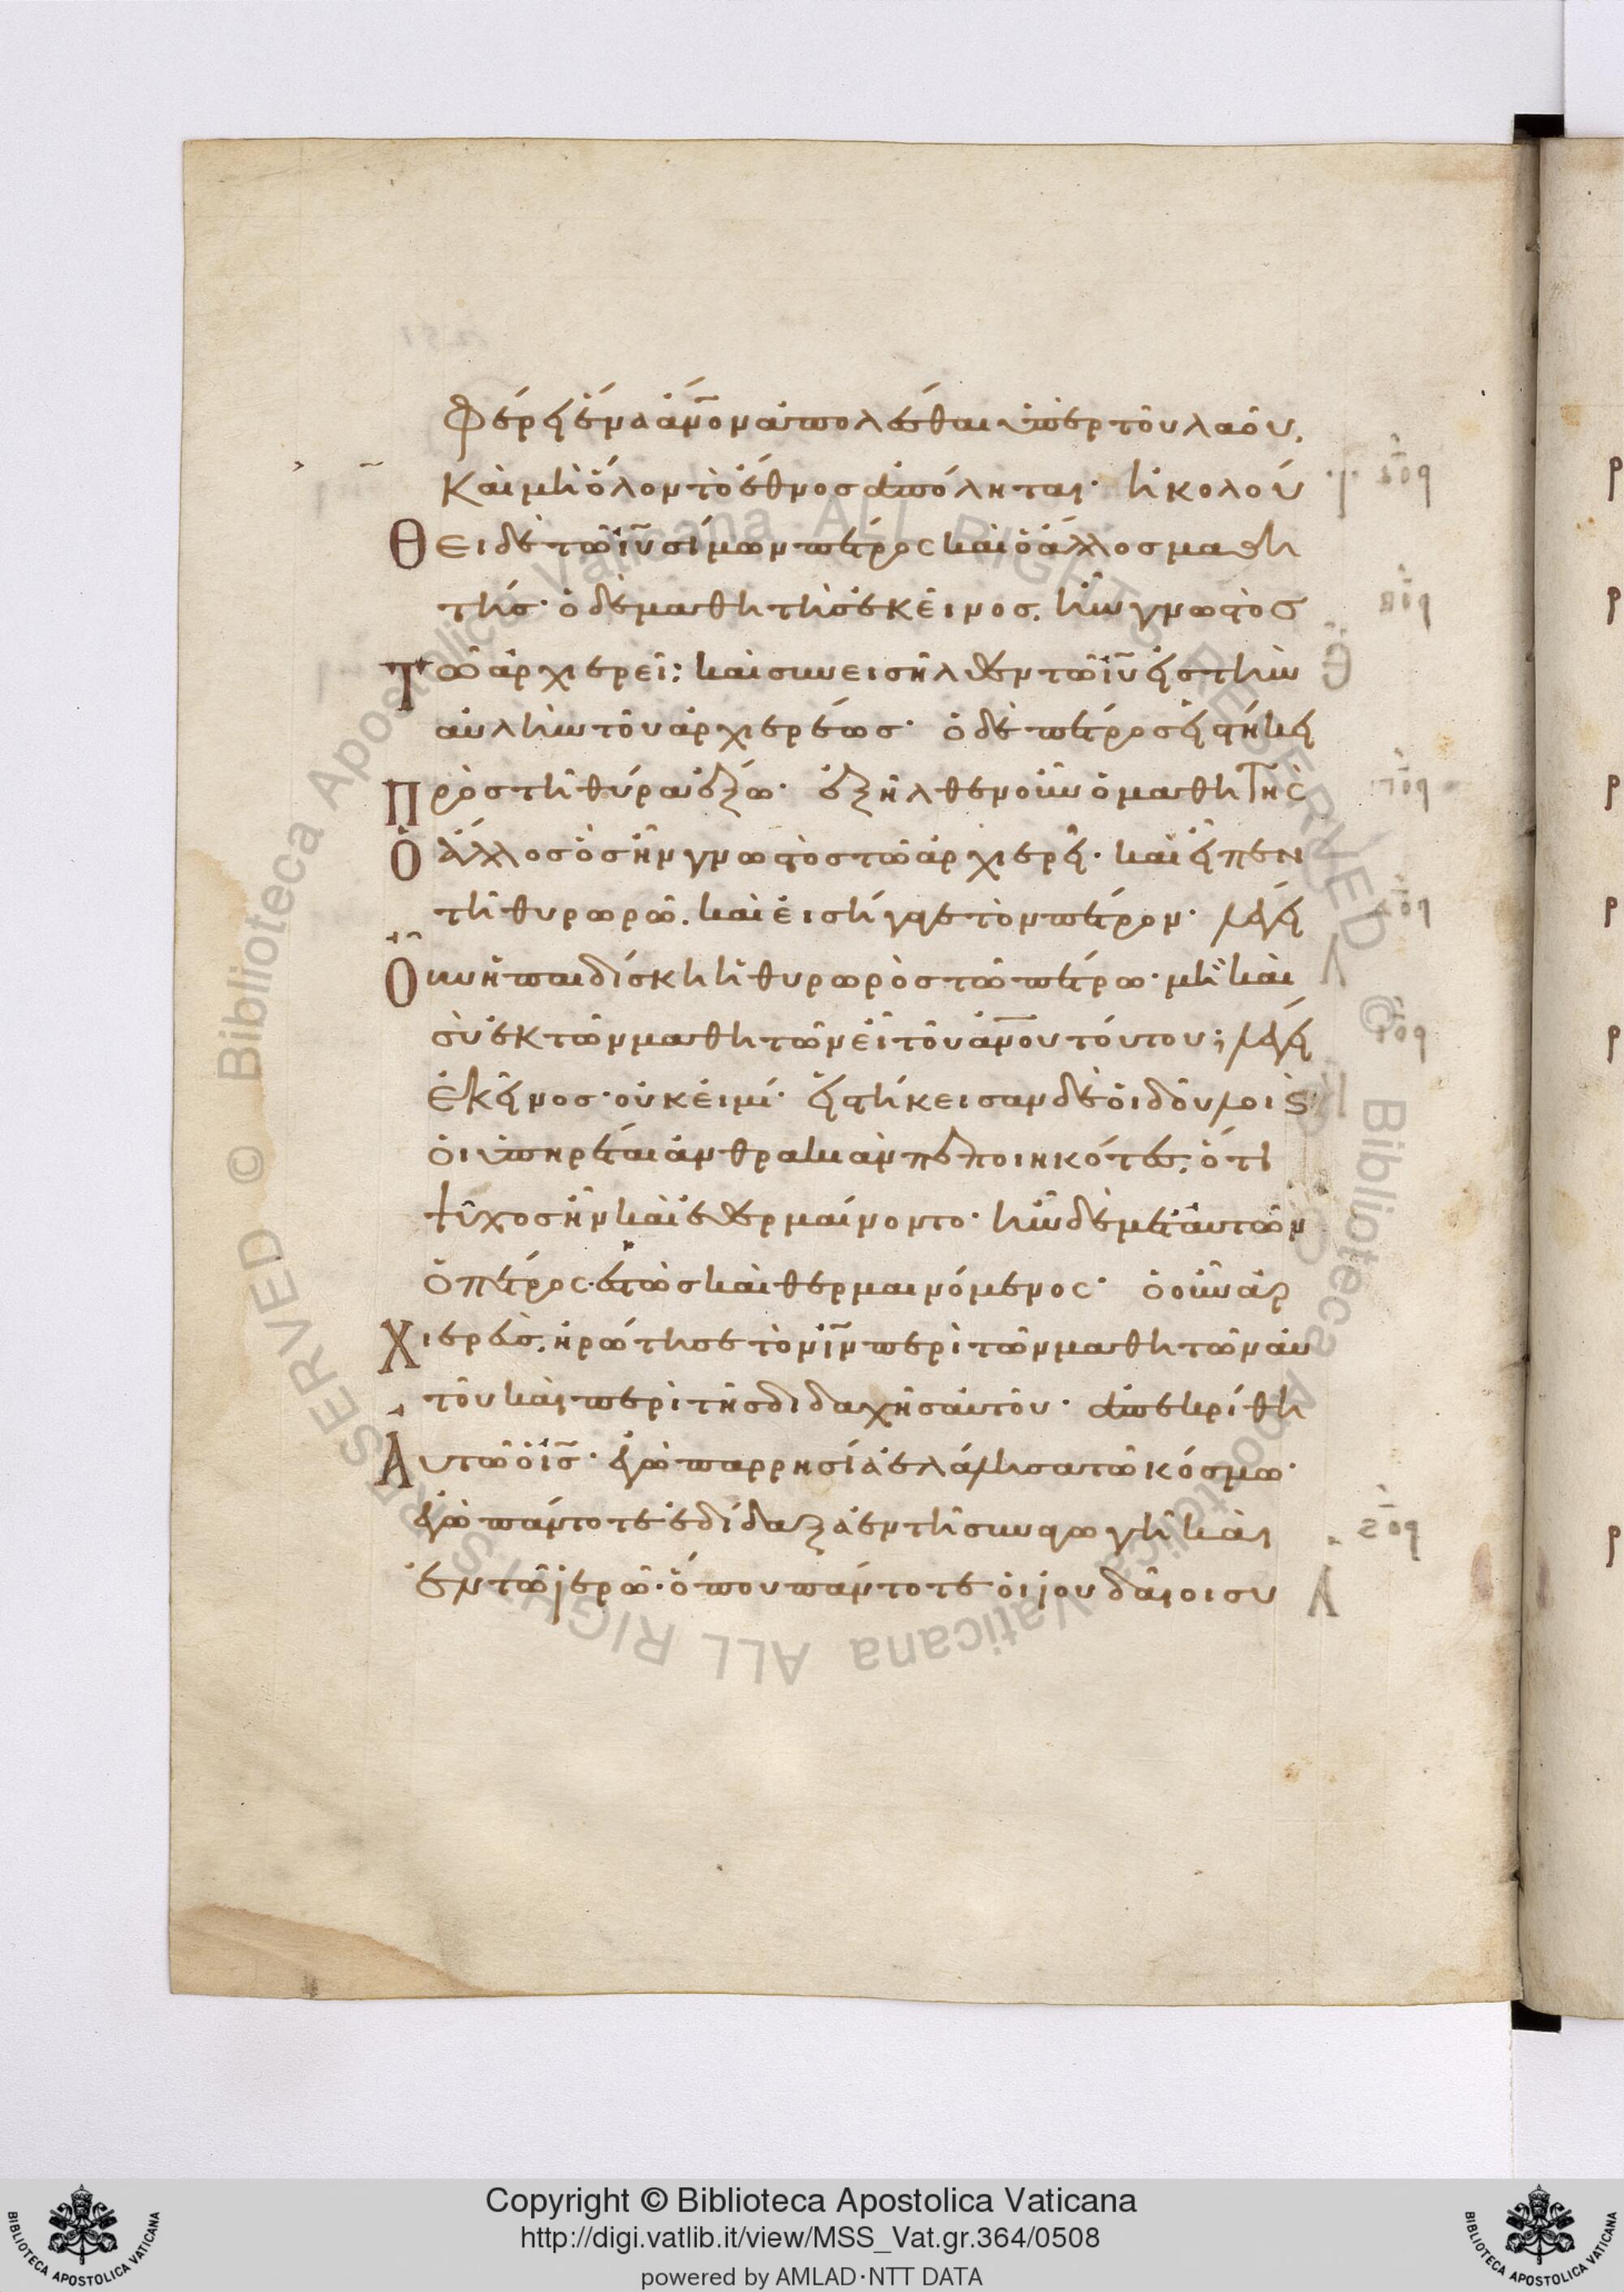 φέρει ἕνα ἄνον ἀπολέσθαι ὑπὲρ τοῦ λαοῦ.
Καὶ μὴ ὅλον τὸ ἔθνος ἀπόληται· ἠκολού
Θει δὲ τῶ ἰῦ σίμων πέτρος καὶ ὁ ἄλλος μαθη
τής· ὁ δὲ μαθητὴς ἐκεῖνος, ἦν γνωστὸς
Τῶ ἀρχιερεῖ: καὶ συνεισῆλθεν τῶ ἰῦ εἰς τὴν
αὐλὴν τοῦ ἀρχιερέως· ὁ δὲ πέτρος εἱστήκει
Πρὸς τῆ θύρα ἔξω· ἐξῆλθεν οὖν ὁ μαθητὴς
Ὁ ἄλλος ὃς ἦν γνωστὸς τῶ ἀρχιερεῖ· καὶ εἶπεν
τῆ θυρωρῶ. καὶ εἰσήγαγε τὸν πέτρον· λέγει
Οὖν ἡ παιδίσκη ἡ θυρωρὸς τῶ πέτρω· μὴ καὶ
σὺ ἐκ τῶν μαθητῶν εἶ τοῦ ἀνου τούτου; λέγει
ἐκεῖνος· οὐκ εἰμί· εἱστήκεισαν δὲ οἱ δοῦλοι ϛ
οἱ ὑπηρέται ἀνθρακιὰν πεποιηκότες, ὅτι
ψῦχος ἦν καὶ ἐθερμαίνοντο· ἦν δὲ μετ' αὐτῶν
ὁ πέτρος ἑστὼς καὶ θερμαινόμενος· ὁ οὖν ἀρ
Χιερεὺς, ἠρώτησε τὸν ἰν περὶ τῶν μαθητῶν αὐ
τοῦ καὶ περὶ τῆς διδαχῆς αὐτοῦ· ἀπεκρίθη
Αὐτῶ ὁ ἰς· ἐγὼ παρρησία ἐλάλησα τῶ κόσμω·
ἐγὼ πάντοτε ἐδίδαξα ἐν τῆ συναγωγῆ καὶ
ἐν τῶ ἱερῶ· ὅπου πάντοτε οἱ ἰουδαῖοι συ
Copyright © Biblioteca Apostolica Vaticana
http://digi.vatlib.it/view/MSS_Vat.gr.364/0508
powered by AMLAD·NTT DATA